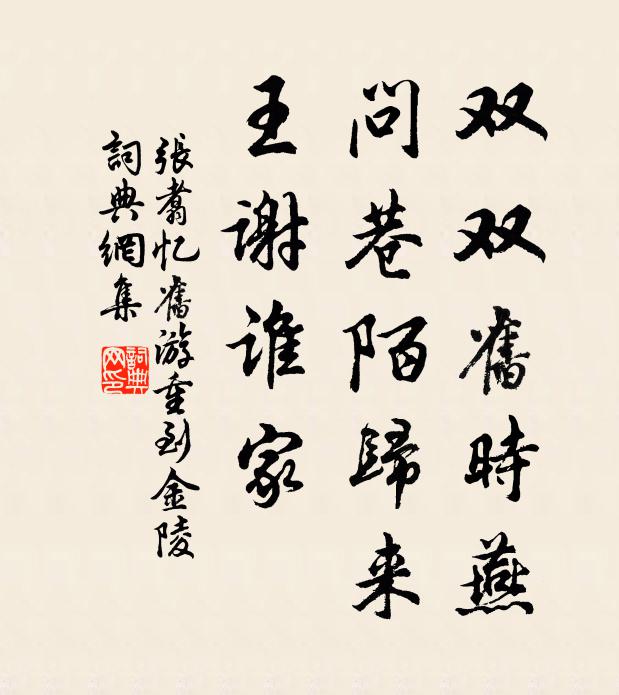 双双舊時燕
问巷陌歸来
王谢谁家
張翥忆舊游重到金陵
詞典網集
詞典网印